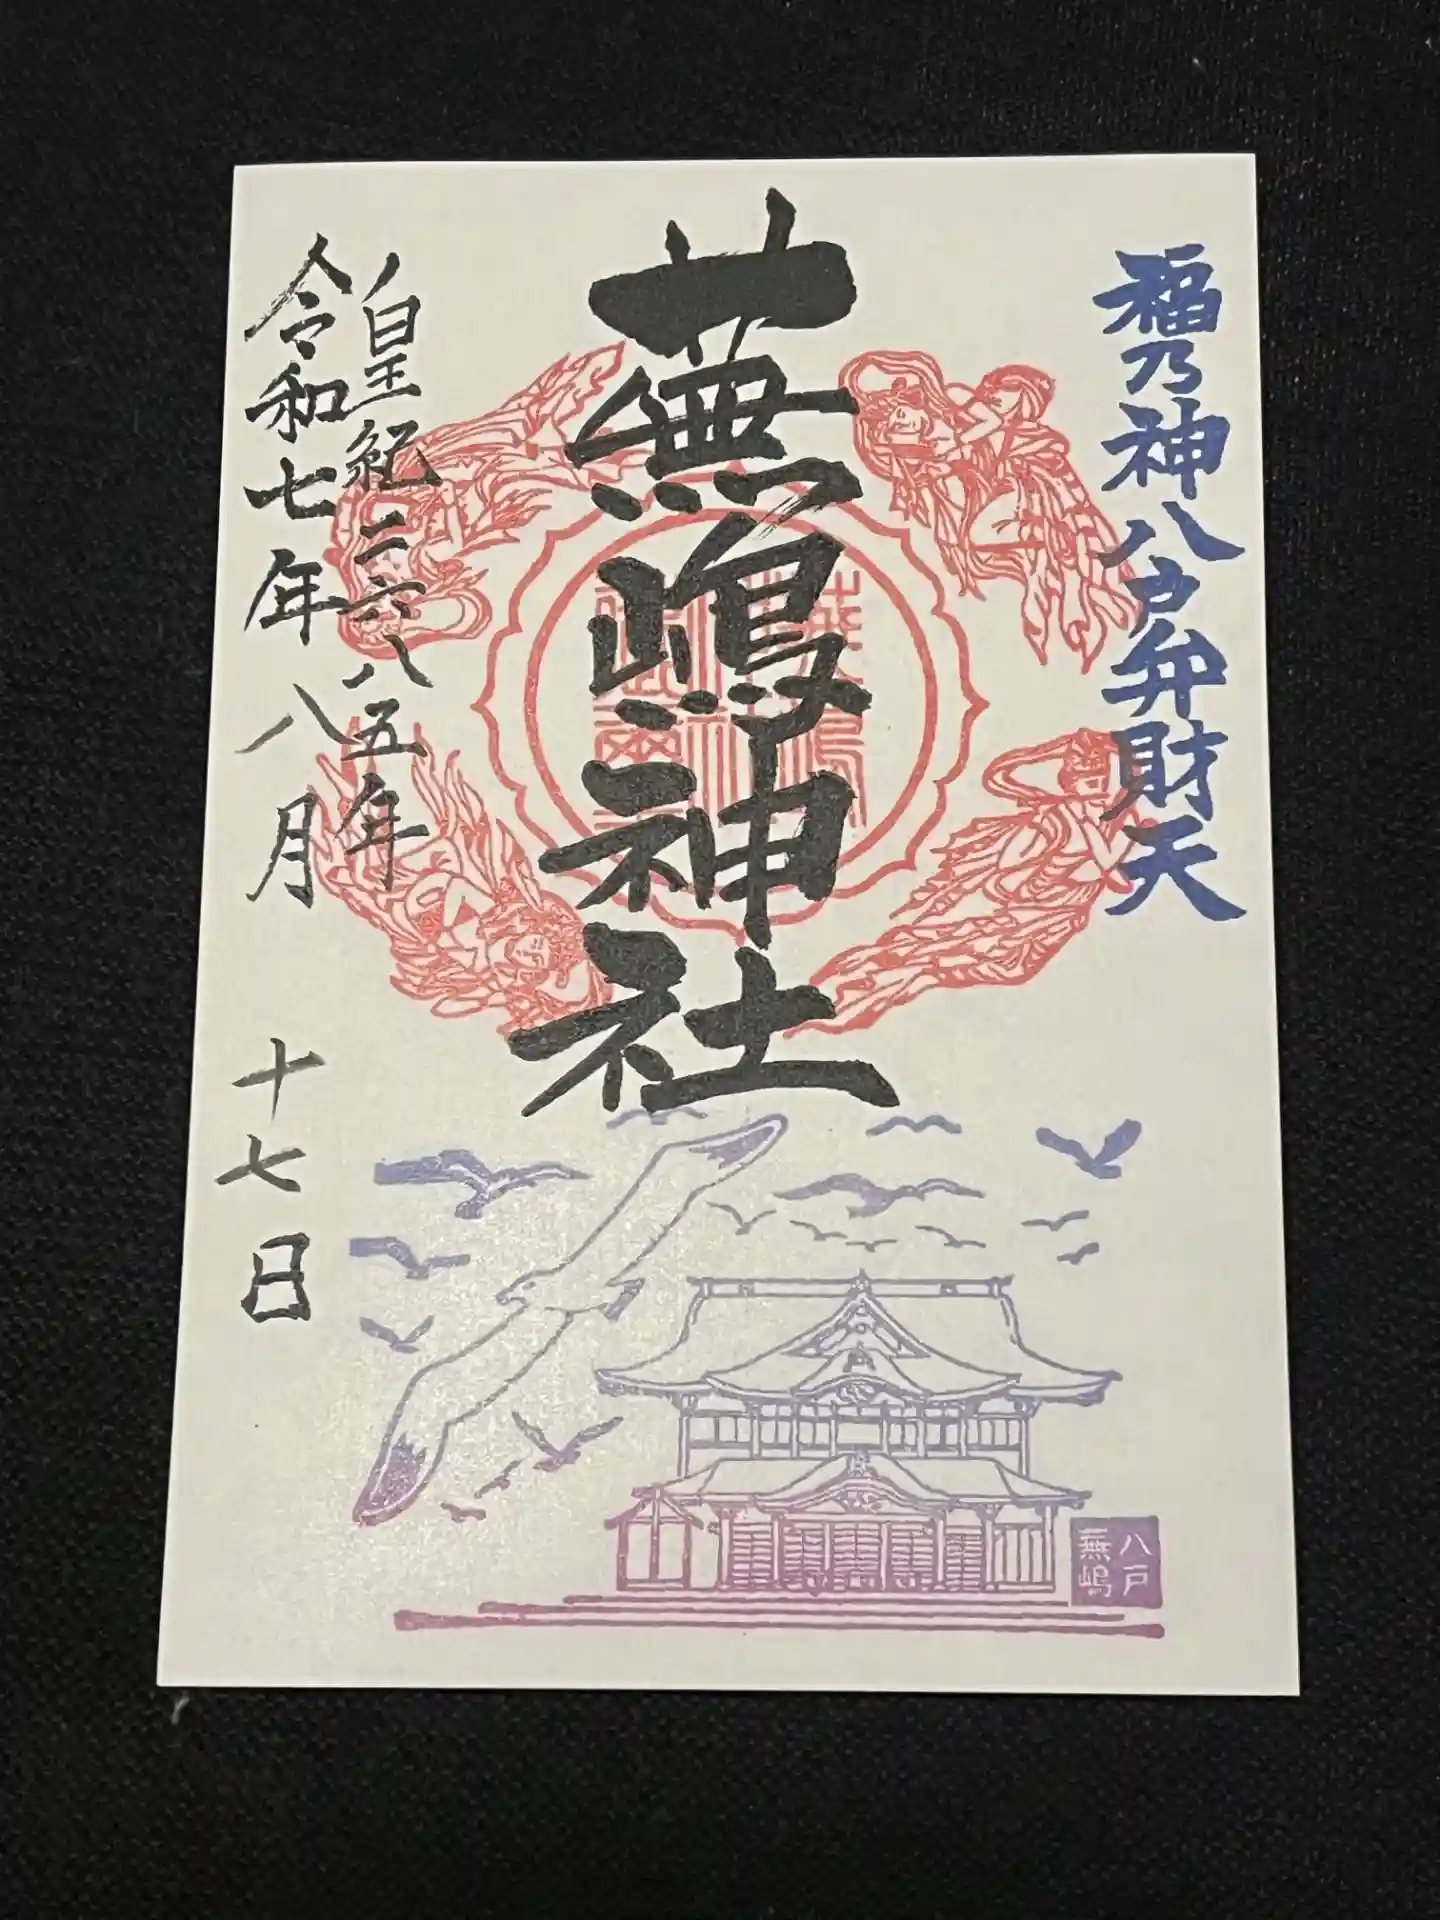 福乃神八戸弁財天
蕪嶋神社
皇紀二六八五年
令和七年八月十七日
八戸
蕪嶋